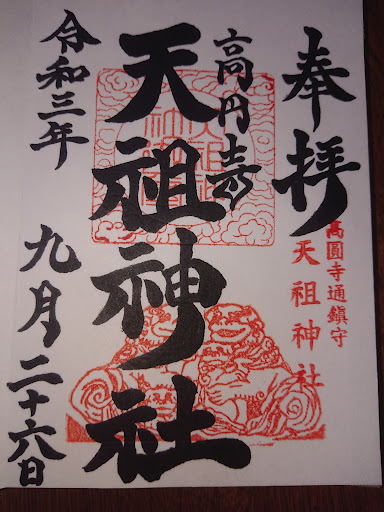 奉拝
高圓寺通鎮守
天祖神社
高円寺
天祖神社
令和三年
九月二十六日